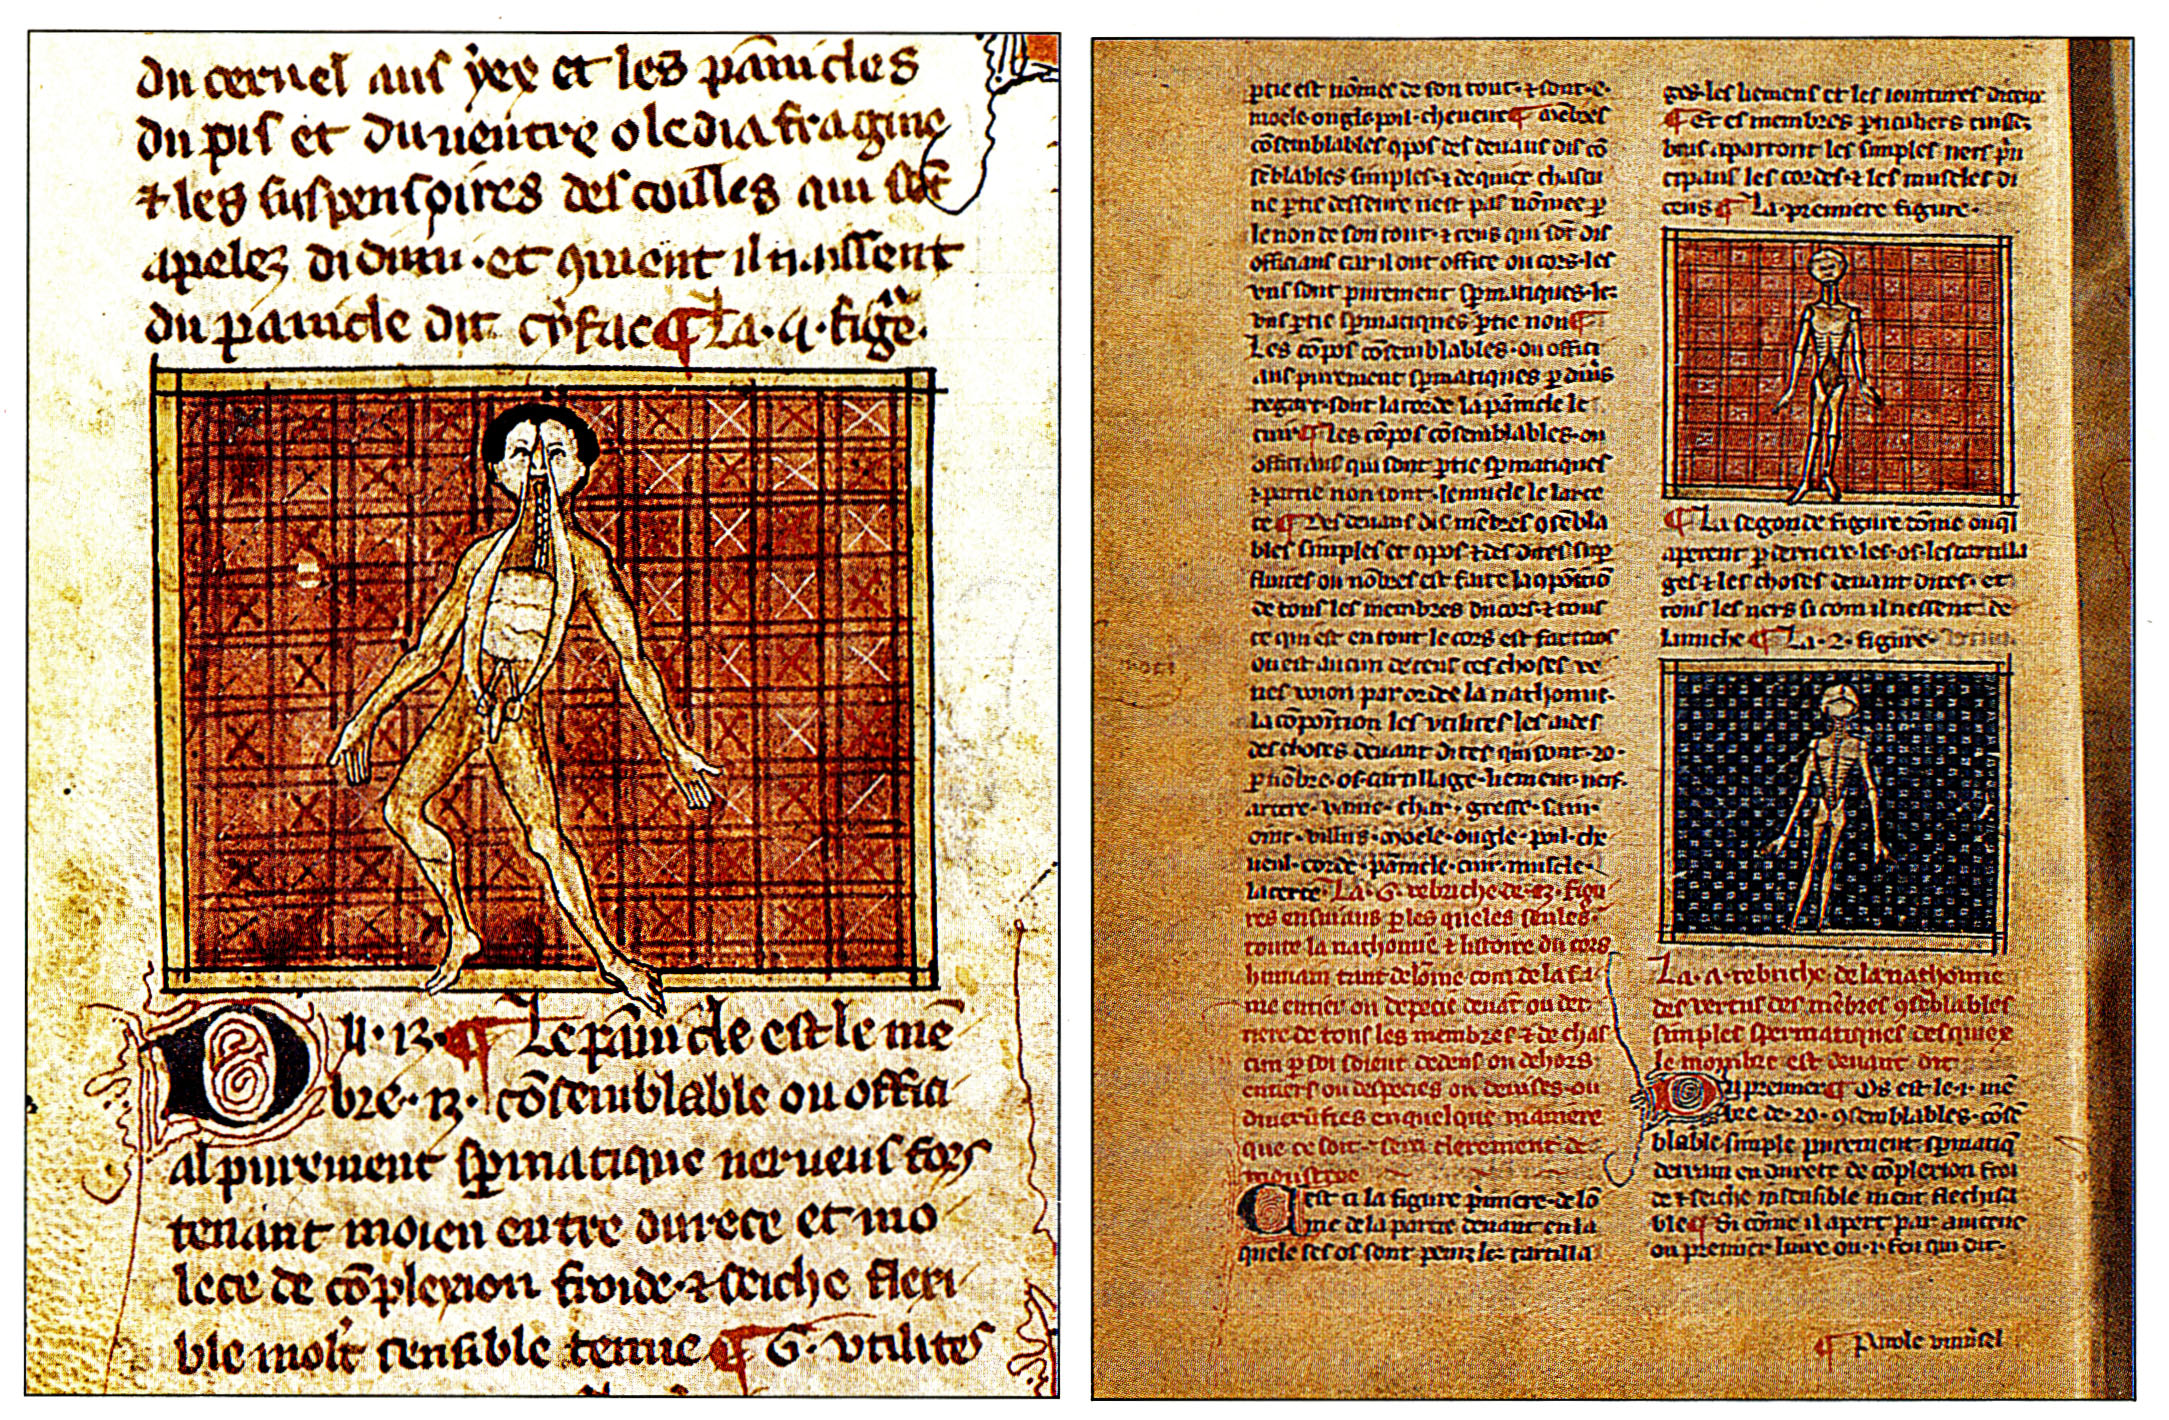 du cervel aus yex et les pānicles
du pis et du ventre o le diafragme
⁊ les suspensoires des coilles qui sōt
apelez didimi · et 9uient il naissent
du panicle dit cyfac ¶ La · 4 · figᵉ·
Du · 13 · ¶ Le pānicle est le mē
bre · 13 · cōsemblable ou offici
al purement spmatique nerveus fors
tenant moien entre durece et mo
lece de cōplexion froide ⁊ seiche flexi
ble molt sensible tenue ¶ G · utilites
ptie est nōmee de son tout · ⁊ sont · c ·
moele ongle poil · cheveul ¶ mēbres
cōsemblables 9pos des devans dis cō
sēblables simples · ⁊ de quiex chascu
ne ptie dessevree nest pas nōmee p
le non de son tout · ⁊ ceus qui sōt dis
officiaus car il ont office ou cors · les
uns sont purement spmatiques · les
uns ptie spmatiques ptie non ¶
Les cōpos cōsemblables · ou offici
aus purement spmatiques p divs
regart · sont la corde la pānicle le
cuir ¶ Les cōpos cōsemblables · ou
officiaus qui sont ptie spmatiques
⁊ partie non sont · le muscle le lacer
te ¶ Des devans dis mēbres 9sēbla
bles simples et 9pos ⁊ des dites sup
fluites ou nōbres est faite la 9positiō
de tous les membres du cors · ⁊ tout
ce qui est en tout le cors est
ou est aucun de ceus ces choses ve
nes voion par ordre la nathomie ·
la cōposition les utilites les aides
des choses devant dites qui sont · 20 ·
p nōbre · os · cartillage · liement · nerf ·
artere · veine · char · gresse · sain ·
oint · villus · moele · ongle · poil · che
veul · corde · pānicle · cuir · muscle ·
lacerte · La · G · rebriche de · 13 · figu
res ensuians p les queles seules
toute la nathomie ⁊ histoire du cors
humain tant de lōme com de la fa
me entier ou depecie devāt ou der
riere de tous les membres ⁊ de chas
cun p soi soient dedens ou dehors ·
entiers ou despecies ou devises · ou
diversifies en quelque maniere
que ce soit · sera clerement de
moustree
Cest ci la figure p̄miere · de lō
me de la partie devant en la
quele ses os sont peinz les cartilla
ges · les liemens et les iointures
¶ Et es membres
bras apartont les simples ners
les cordes · ⁊ les muscles di
ceus ¶ La premiere figure ·
¶ La segonde figure cōme
aperent p derriere · les · os · les cartilla
ges ⁊ les choses devant dites · et
tous les ners si com il nessent · de
la nuche ¶ La · 2 · figure ·
La · 4 · rebriche · de la nathomie
des vertus des mēbres 9sēblables
simples spermatiques desquiex
le nombre est devant dit
Du premier ¶ Os est le · 1 · mē
bre de · 20 · 9semblables · cōsē
blable simple purement · spmatiq
derrain en durece de cōplexion froi
de ⁊ seiche insensible nient flechisa
ble ¶ Si cōme il apert par avicene
ou premier livre ou · 1 · fen qui dit ·
¶ Parole